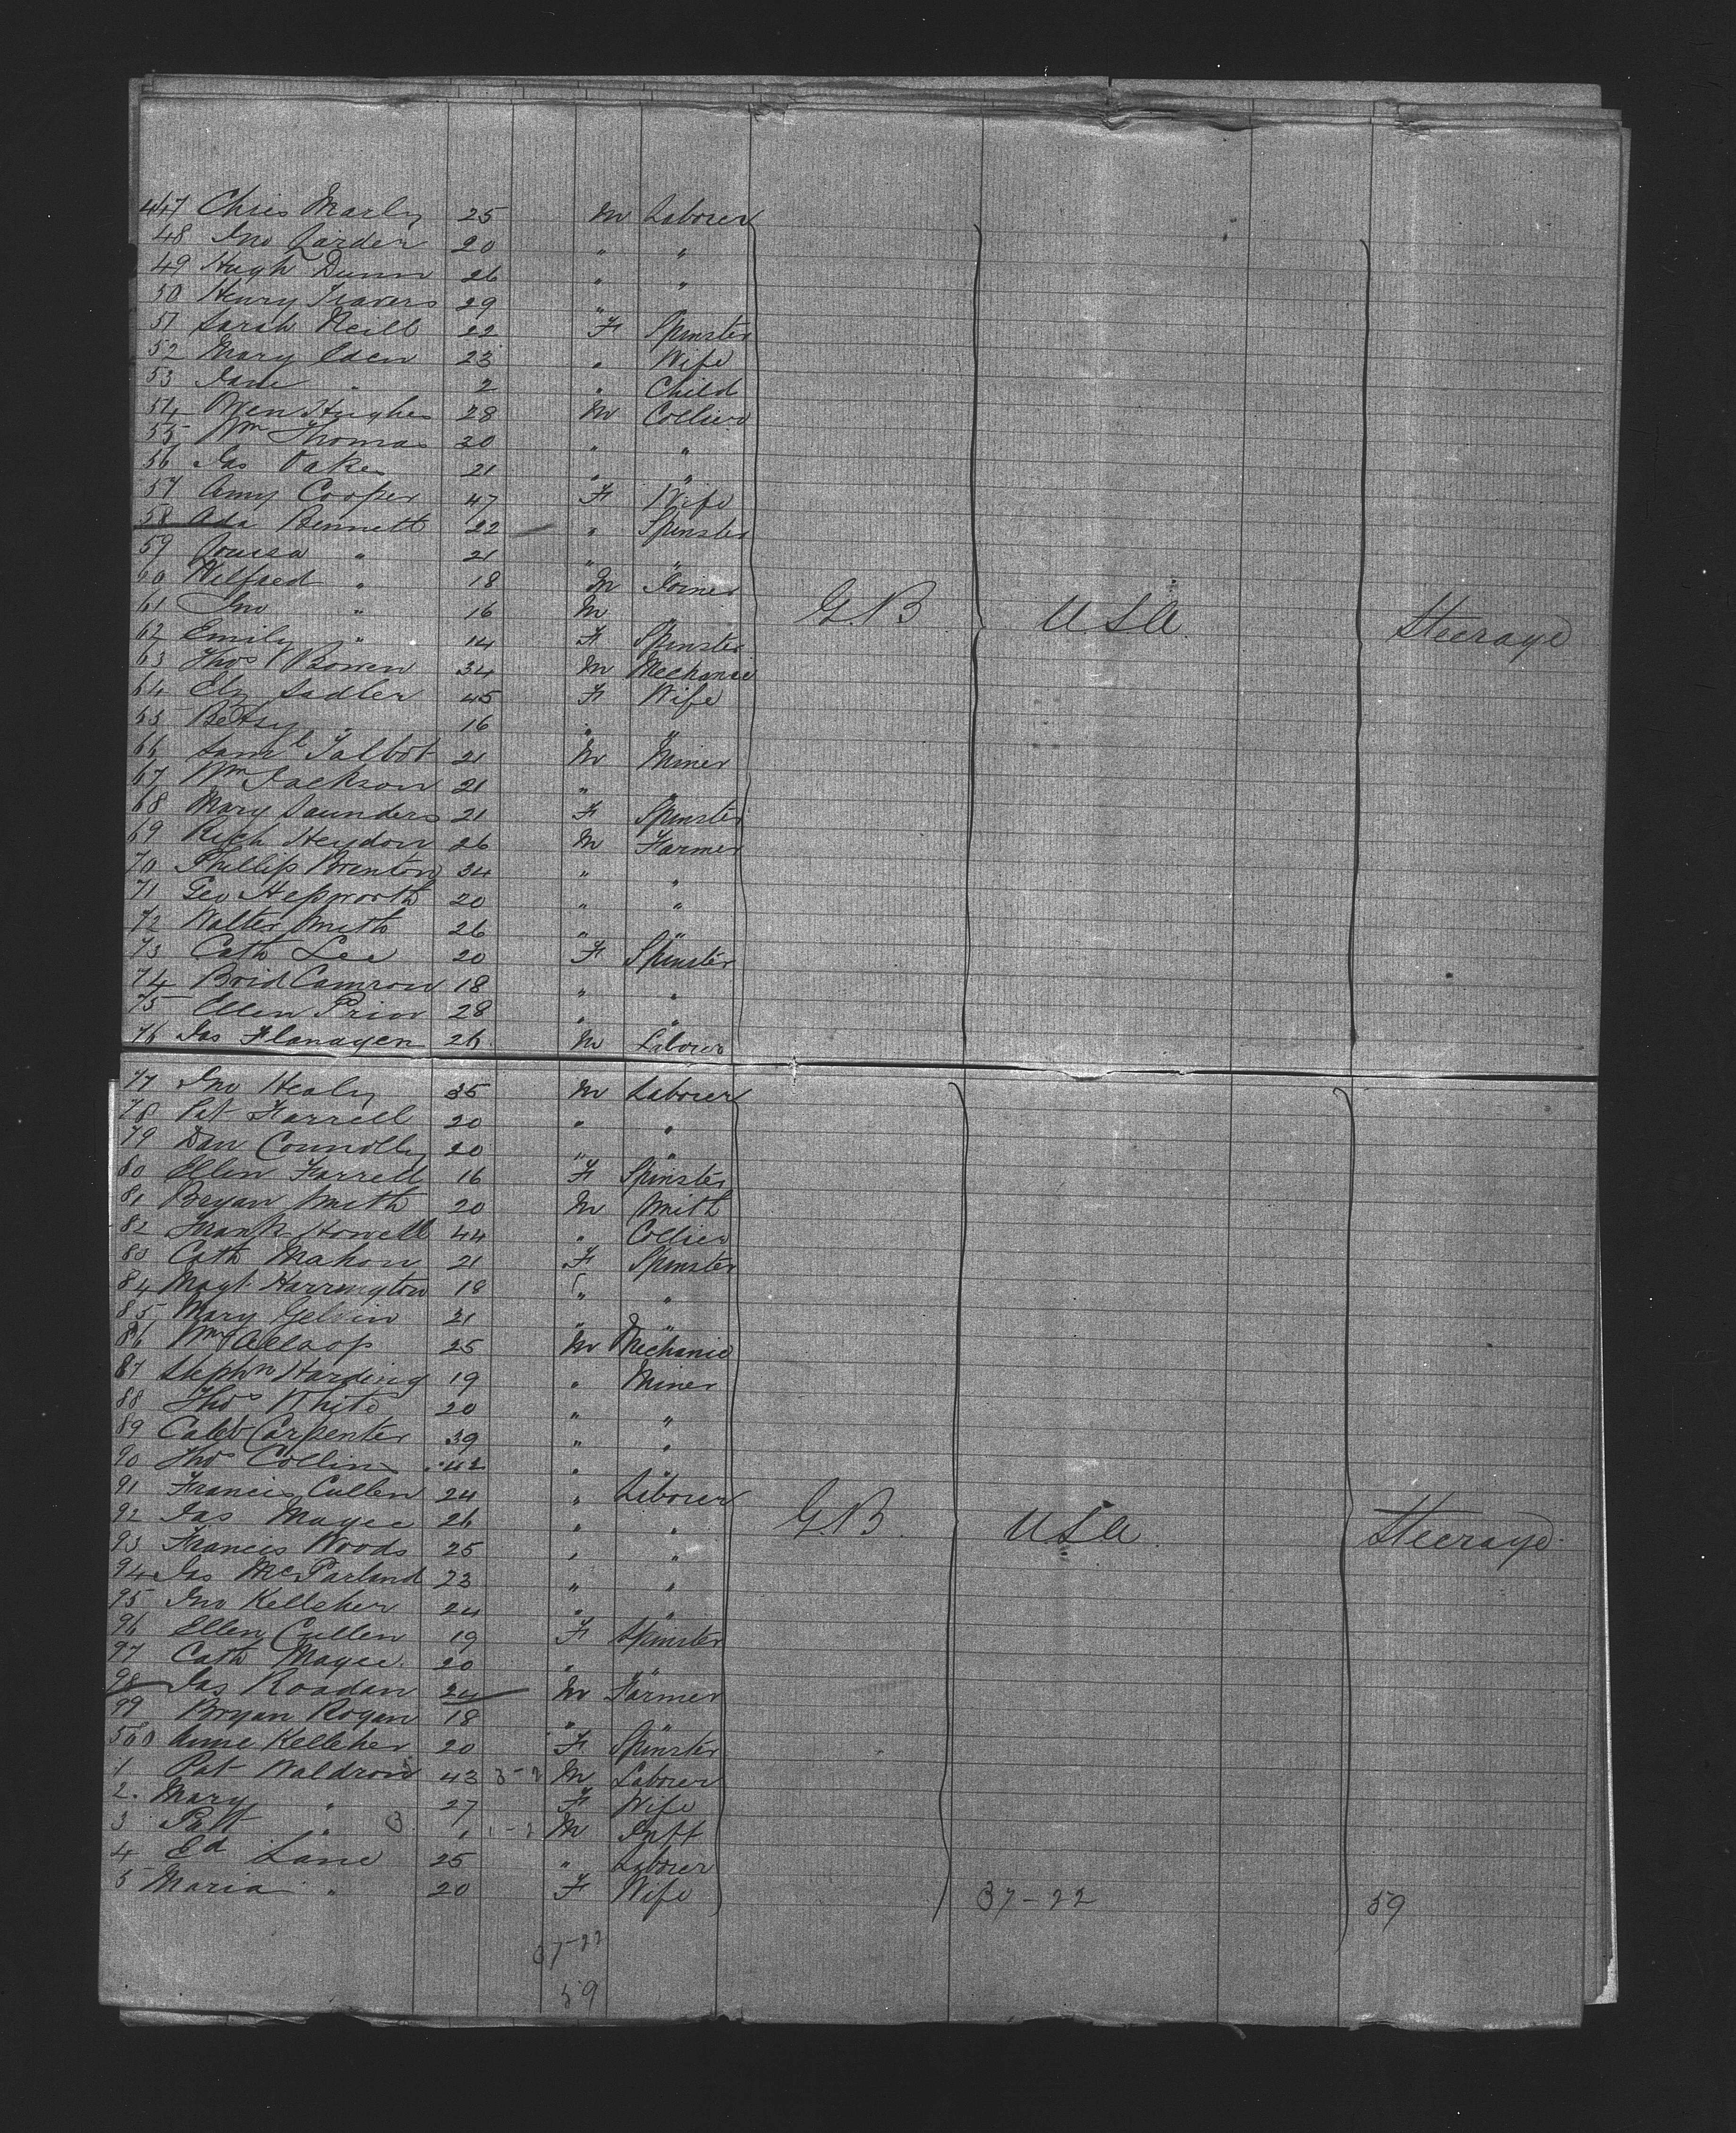 447 Chris Marly 25 M Laborer
48 Jno Larder 20 " "
49 Hugh Dunn 26 " "
50 Henry Travers 29 "
51 Sarah Neill 22 F Spinster
52 Mary Eden 23 " Wife
53 Jane " 2 " Child
54 Owen Hughes 28 M Collier
55 Wm Thomas 30 " "
56 Jas Oakes 21 " "
57 Amy Cooper 47 F Wife
58 Ada Bennett 22 " Spinster
59 Louisa " 21 " "
60 Wilfred " 18 M Joiner
61 Jno " 16 M " GB USA Steerage
62 Emily " 14 F Spinster
63 Thos Bowen 34 M Mechanic
64 Elz Sadler 45 F Wife
65 Betsy " 16 " "
66 Saml Talbot 21 M Miner
67 Wm Jackson 21 " "
68 Mary Saunders 21 F Spinster
69 Rich Heydon 26 M Farmer
70 Phillip Brenton 34 " "
71 Geo Hepworth 20 " "
72 Walter Smith 26 " "
73 Cath Lee 20 F Spinster
74 Brid Camron 18 " "
75 Ellen Prior 28 " "
76 Jas Flanagen 26 M Laborer
77 Jno Healy 35 M Laborer
78 Pat Farrell 20 " "
79 Dan Connolly 20 " "
80 Ellen Farrell 16 F Spinster
81 Bryan Smith 20 M Smith
82 Frank Howell 44 " Collier
83 Cath Mahon 21 F Spinster
84 Magt Harrington 18 " "
85 Mary Gelvin 21 " "
86 Wm Allsop 25 M Mechanic
87 Stephn Harding 19 " Miner
88 Thos White 20 " "
89 Caleb Carpenter 39 " "
90 Thos Collins 42 " "
91 Francis Cullen 24 " Laborer
92 Jas Magee 26 " " GB USA Steerage
93 Francis Woods 25 " "
94 Jas McParland 23 " "
95 Jno Kelleher 24 " "
96 Ellen Cullen 19 F Spinster
97 Cath Magee 20 " "
98 Jas Roadan 24 M Farmer
99 Bryan Rogan 18 " "
500 Anne Kelleher 20 F Spinster
1 Pat Waldron 43 3-2 M Laborer
2. Mary " 27 F Wife
3 Patt " 3 1 1-2 M Inft
4 Ed Lane 25 " Laborer
5 Maria " 20 F Wife 37-22 59
37-22
59